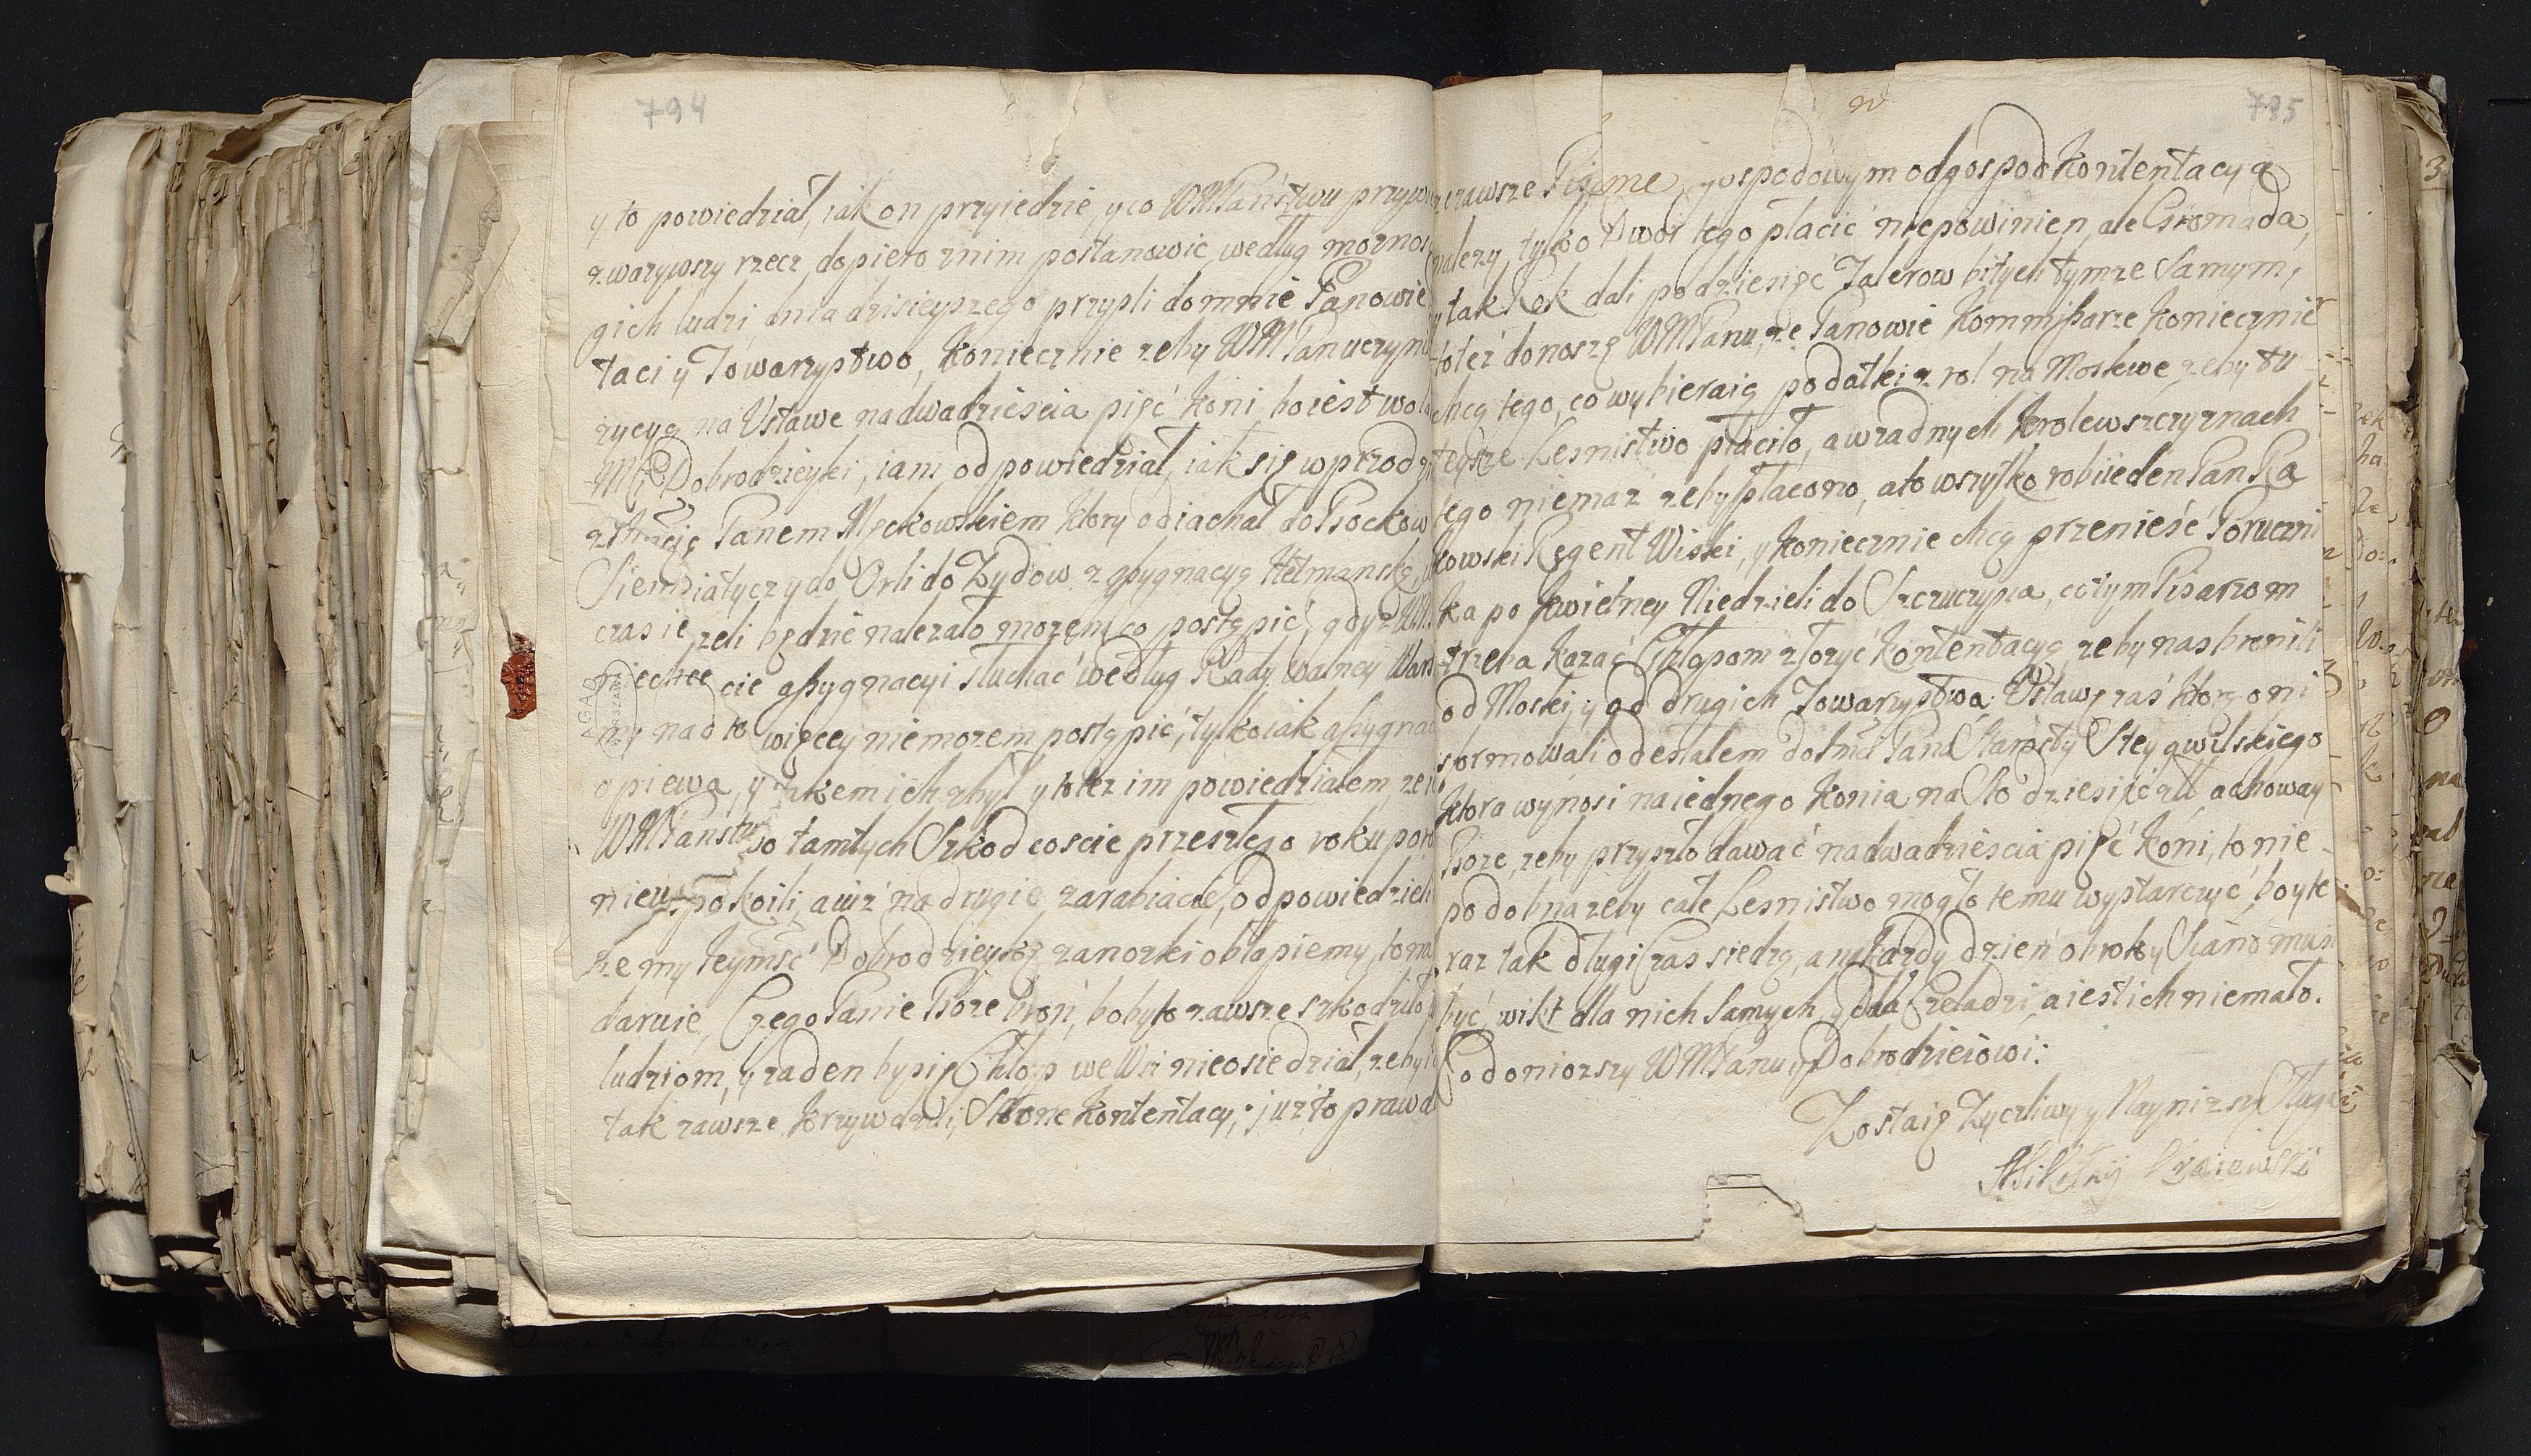 794
y to powiedział, iak on przyiedzie, y co WMPaństwu przypo
zwazywszy rzecz dopiero znim postanowic według moznos
gich ludzi dnia dzisieyszego przyszli do mnie Panowie
taci y Towarzystwo, koniecznie zeby WMPan uczyni
zycyą na Ustawe na dwadziescia pięć koni bo iest wola
Dobrodzieyki, iam odpowiedział, iak się wprzod
Panem Męckowskiem ktory odiachał do Bockow
Siemiatyczy do Orli do Zydow z assygnacyą Hetmanską
czas ieżeli będzie nalezało mozem co postąpić, gdyz WM
niechcecie assygnacyi słuchać według Rady walney Wars
my nad to więcey niemozem postąpić, tylko iak assygnac
opiewa, y takem ich zbył y totez im powiedziałem, ze
WMPaństwo tamtych Szkod coscie przeszłego roku poro
nieuspokoili, a iuz na drugie zarabiacie, odpowiedzieli
ze my Ieymść Dobrodzieykę za nozki obłapiemy, to na
daruie, Czego Panie Boze broń, bo by to zawsze szkodziło
ludziom, y zaden by się Chłop we Wsi nieosiedział, zeby
tak zawsze krzywdzili, Słone kontentacy; już to prawd
795
zerawsze Pisme, gospodowym od gospod kontentacyą
nalezy, tylko Dwor tego płacić niepowinien, ale Gromada,
y tak Rok dali po dziesięć Talerow bitych tymze Samym,
toteż donoszę WMPanu, ze Panowie Kommissarze koniecznie
chcą tego, co wybieraią podatki z rol na Moskwe zeby tu
teysze Lesnistwo płaciło, a wzadnych krolewszczyznach
tego niemaz zeby płacono, a to wszytko robi ieden Pan Ra
kowski Regent Wiski, y koniecznie chcą przenieść Poruczni
ka po kwietney Niedzieli do Szczuczyna, co tym Pisarzom
trzeba kazać Chłopom złozyć kontentacyą, zeby nas bronili
od Moski, y od drugich Towarzystwa; Ustawę zaś którą oni
sformowali odesłałem do Imci Pana Starosty Steygwilskiego
ktora wynosi na iednego konia na Sto dziesięć zll a choway
Boze, zeby przyszło dawać na dwadziescia pięć koni, to nie
podobna zeby całe Lesnistwo mogło temu wystarczyć, bo y te
raz tak długi Czas siedzą, a na kazdy dzień obroki y Siano musi
być, wikt dla nich Samych, y dla Czeladzi, a iest ich niemało.
Co doniozszy WMPanu y Dobrodzieiowi:
Zostaię Zyczliwy y Nayniższy Sługa
Mikołay Kraiewski